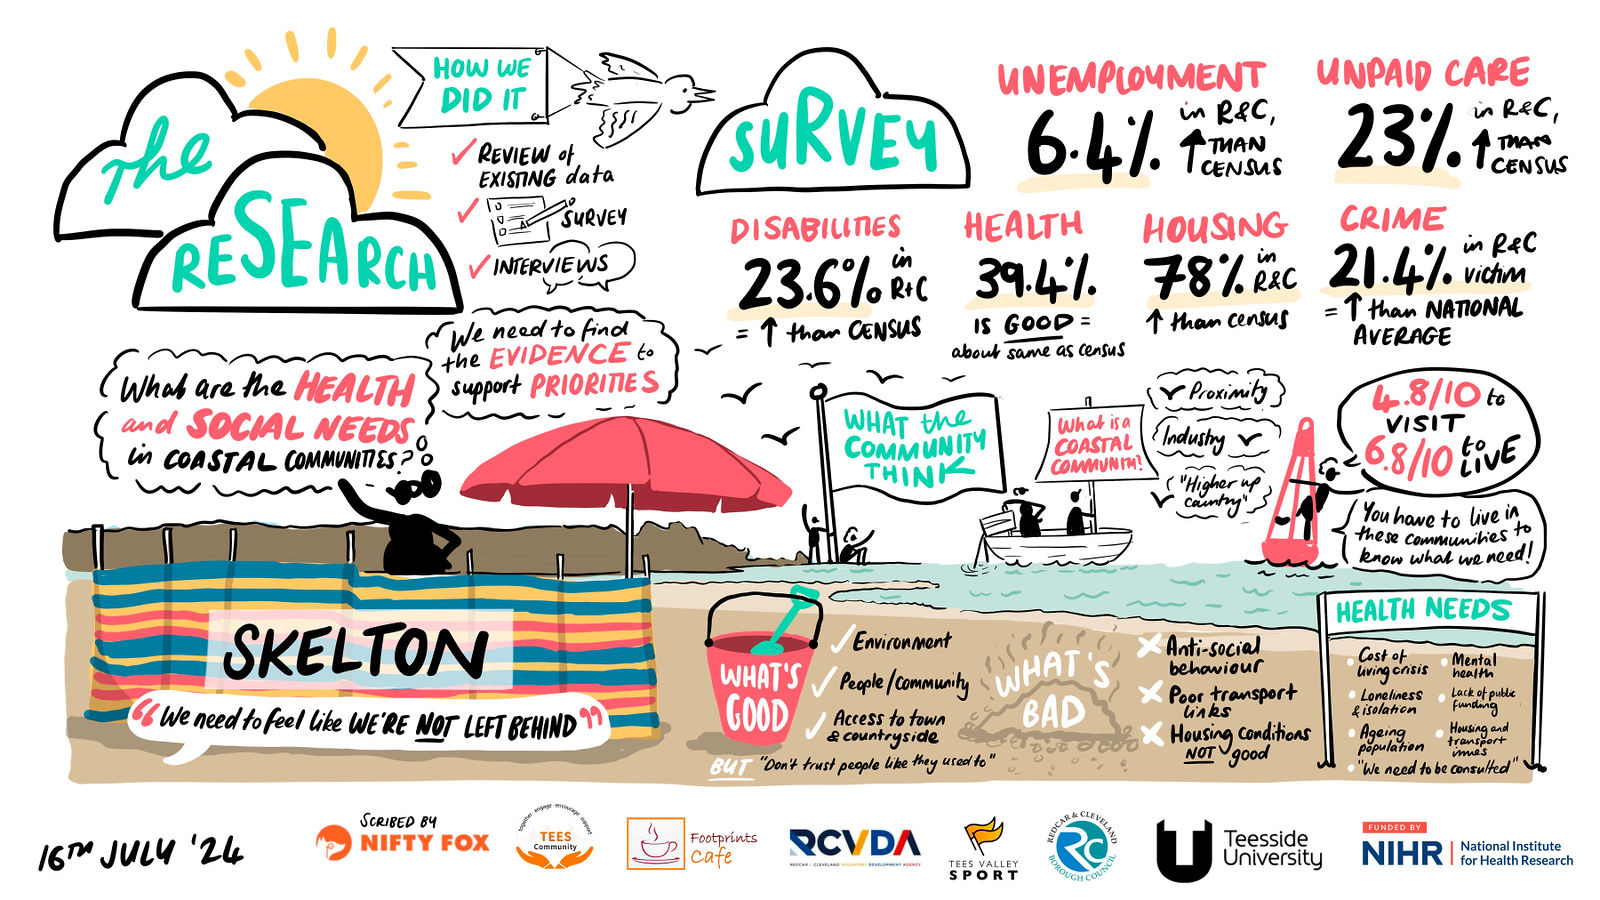 The
RESEARCH
HOW WE
DID IT
REVIEW of
EXISTING data
SURVEY
INTERVIEWS
We need to find
the EVIDENCE to
support PRIORITIES
What are the HEALTH
and SOCIAL NEEDS
in COASTAL COMMUNITIES?
SURVEY
UNEMPLOYMENT
6.4%
in R&C,
↑ THAN
CENSUS
UNPAID CARE
23%
in R&C,
↑ THAN
CENSUS
DISABILITIES
23.6% in
R+C
= ↑ than CENSUS
HEALTH
39.4%
IS GOOD =
about same as census
HOUSING
78% in
R&C
↑ than census
CRIME
21.4% in R&C
victim
= ↑ than NATIONAL
AVERAGE
WHAT the
COMMUNITY
THINK
What is a
COASTAL
COMMUNITY?
Proximity
Industry
"Higher up
country"
4.8/10 to
VISIT
6.8/10 to
LIVE
You have to live in
these communities to
know what we need!
SKELTON
"We need to feel like WE'RE NOT LEFT BEHIND"
WHAT'S
GOOD
Environment
People/Community
Access to town
& countryside
BUT "Don't trust people like they used to"
WHAT'S
BAD
Anti-social
behaviour
Poor transport
links
Housing conditions
NOT good
HEALTH NEEDS
Cost of
living crisis
Loneliness
& isolation
Ageing
population
Mental
health
Lack of public
funding
Housing and
transport
issues
"We need to be consulted"
16TH JULY '24
SCRIBED BY
NIFTY FOX
together engage encourage support
TEES
Community
Footprints
Cafe
RCVDA
REDCAR & CLEVELAND VOLUNTARY DEVELOPMENT AGENCY
TEES VALLEY
SPORT
REDCAR & CLEVELAND
RC
BOROUGH COUNCIL
Teesside
University
FUNDED BY
NIHR | National Institute
for Health Research